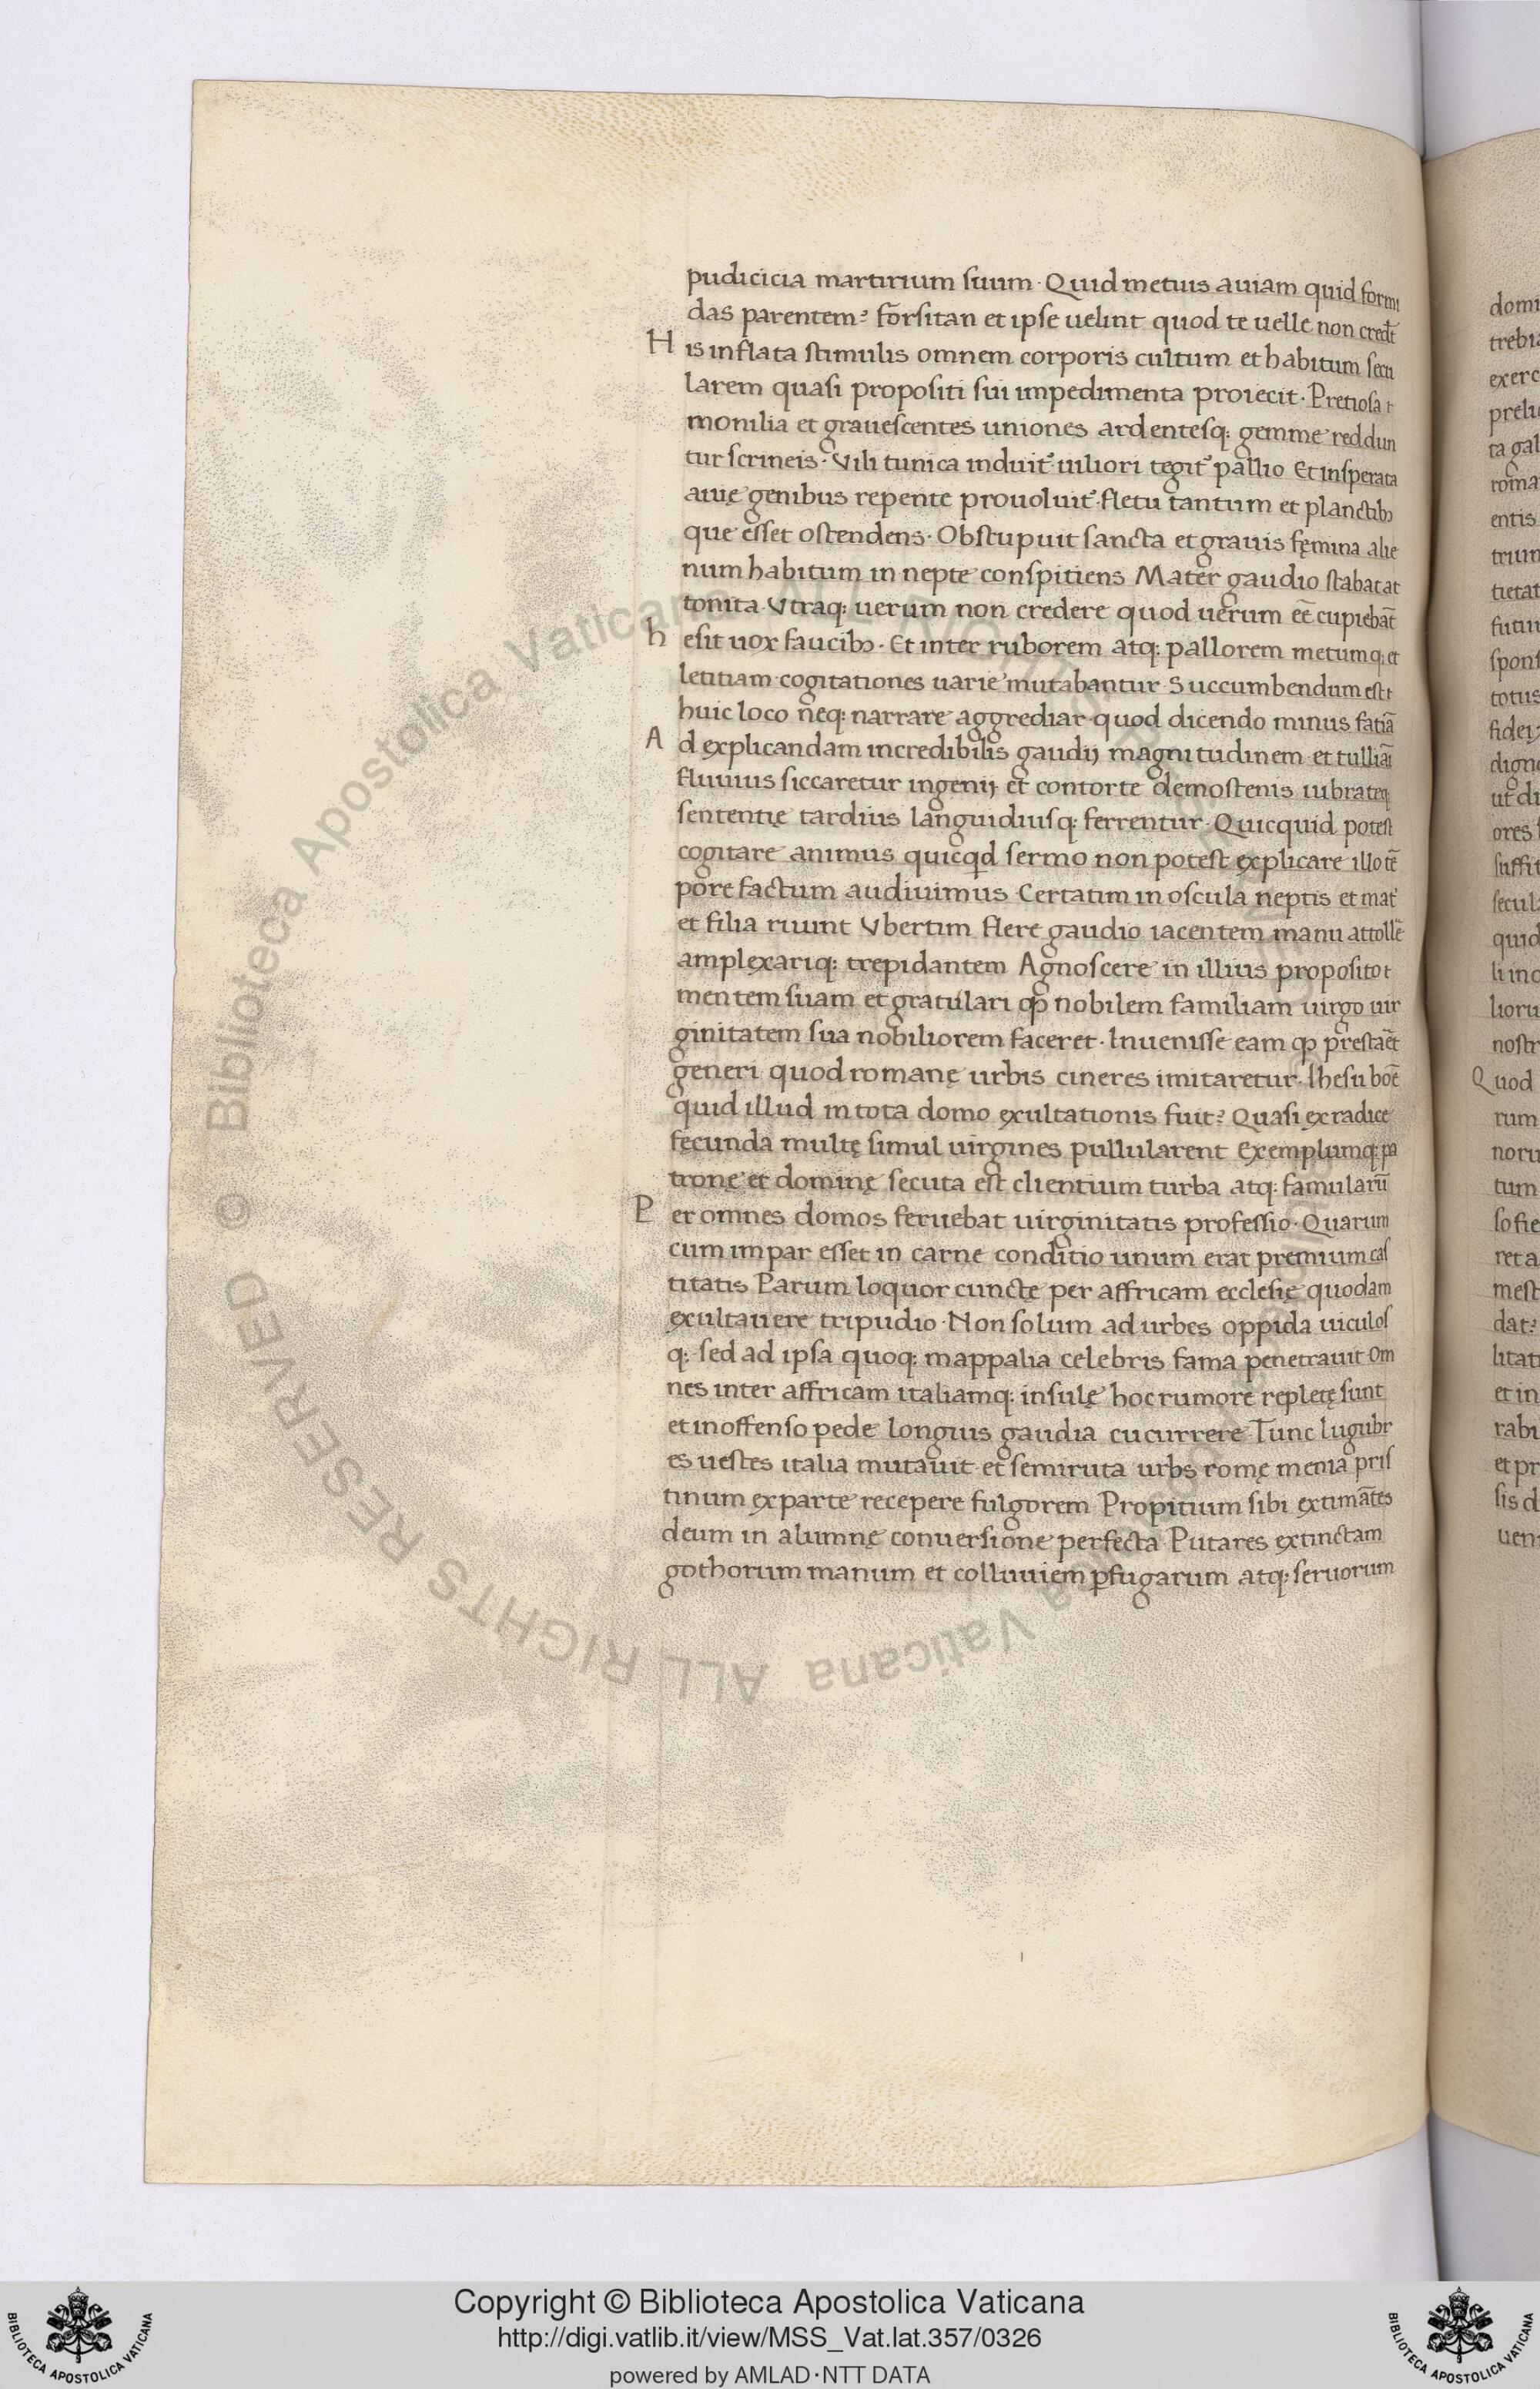 pudicicia martirium suum · Quid metuis auiam quid formi
das parentem? forsitan et ipse uelint quod te uelle non credt̄
His inflata stimulis omnem corporis cultum et habitum secu
larem quasi propositi sui impedimenta proiecit · Pretiosa
monilia et grauescentes uniones ardentesq; gemme reddun
tur scrineis · Vili tunica induit᷑ uiliori tegit᷑ pallio Et insperata
auię genibus repente prouoluit᷑ · fletu tantum et planctibꝫ
que esset ostendens · Obstupuit sancta et grauis fęmina alie
num habitum in nepte conspitiens Mater gaudio stabat at
tonita · Vtraq; uerum non credere quod uerum eē cupiebāt
hesit uox faucibꝫ · Et inter ruborem atq; pallorem metumq; et
letitiam cogitationes uarie mutabantur · Succumbendum est
huic loco neq; narrare aggrediar quod dicendo minus fatiā
Ad explicandam incredibilis gaudij magnitudinem et tulliāi
fluuius siccaretur ingenij et contorte demostenis uibrateq;
sententię tardius languidiusq; ferrentur · Quicquid potest
cogitare animus quicqd sermo non potest explicare illo tē
pore factum audiuimus Certatim in oscula neptis et mat᷑
et filia ruunt Vbertim flere gaudio iacentem manu attollē
amplexariq; trepidantem Agnoscere in illius proposito
mentem suam et gratulari qp̄ nobilem familiam uirgo uir
ginitatem sua nobiliorem faceret · Inuenisse eam qp̄ prestaēt
generi quod romanę urbis cineres imitaretur · Ihesu boē
quid illud in tota domo exultationis fuit? Quasi ex radice
fęcunda multę simul uirgines pullularent Exemplumq; pa
tronę et dominę secuta est clientium turba atq; famularū
Per omnes domos feruebat uirginitatis professio · Quarum
cum impar esset in carne conditio unum erat premium cas
titatis Parum loquor cunctę per affricam ecclesię quodam
exultauere tripudio · Non solum ad urbes oppida uiculos
q; sed ad ipsa quoq; mappalia celebris fama penetrauit Om
nes inter affricam italiamq; insulę hoc rumore repletę sunt
et inoffenso pede longius gaudia cucurrere Tunc lugubr
es uestes italia mutauit et semiruta urbs romę menia pris
tinum ex parte recepere fulgorem Propitium sibi extimātes
deum in alumnę conuersione perfecta · Putares extinctam
gothorum manum et colluuiem ꝑfugarum atq; seruorum
domi
trebia
exerc
ta gal
roma
entis
trium
tietat
spons
totus
fidei
ut di
ores
suffit
quid
nostr
Quod
rum
noru
tum
ret a
mest
dat?
litati
et in
rabi
et pr
sis d
© Biblioteca Apostolica Vaticana ALL RIGHTS RESERVED
Copyright © Biblioteca Apostolica Vaticana
http://digi.vatlib.it/view/MSS_Vat.lat.357/0326
powered by AMLAD·NTT DATA
BIBLIOTECA APOSTOLICA VATICANA
BIBLIOTECA APOSTOLICA VATICANA